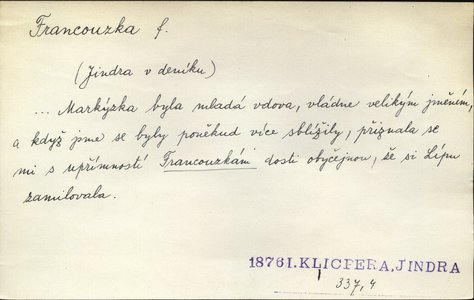 Francouzka f.
(Jindra v deníku)
... Markýzka byla mladá vdova, vládne velikým jměním,
a když jsme se byly poněkud více sblížily, přiznala se
mi s upřímností Francouzkám dosti obyčejnou, že si Lípu
zamilovala.
1876 I. KLICPERA, JINDRA
337, 4